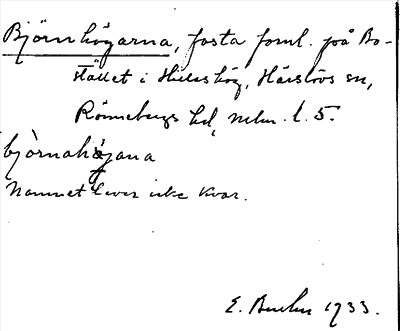 Björnhögarna, fasta forml. på Bo-
stället i Hilleshög, Härslövs sn,
Rönnebergs hd, Mlm. l. 5.
björnahöjana
Namnet lever icke kvar.
E. Bueler 1933.